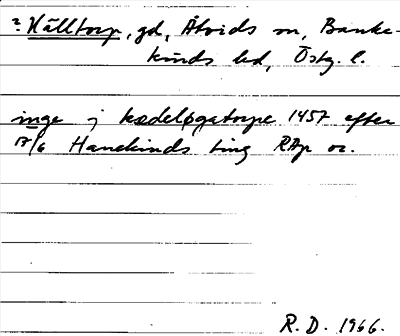 ? Hälltorp, gd, Åtvids sn, Banke-
kinds hd, Östg. l.
inge j kædeløgatorpe 1457 efter
17/6 Hanekinds ting RAp or.
R.D. 1966.